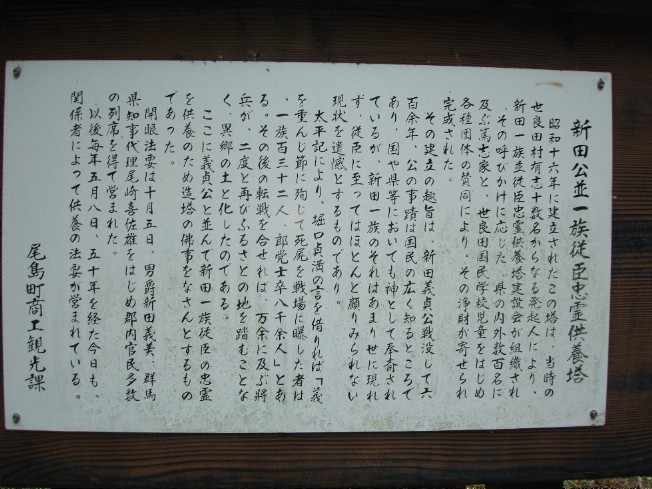 新田公並一族従臣忠霊供養塔
昭和十六年に建立されたこの塔は、当時の
世良田村有志十数名からなる発起人により、
新田一族並従臣忠霊供養塔建設会が組織され
その呼びかけに応じた、県の内外数百名に
及ぶ篤志家と、世良田国民学校児童をはじめ
各種団体の賛同により、その浄財が寄せられ
完成された。
その建立の趣旨は、新田義貞公戦没して六
百余年、公の事蹟は国民の広く知るところで
あり、国や県等においても神として奉斎され
ているが、新田一族のそれはあまり世に現れ
ず、従臣に至ってはほとんど顧りみられない
現状を遺憾とするものであり。
太平記により、堀口貞満の言を借りれば「義
を重んじ節に殉じて死屍を戦場に曝した者は
、一族百三十二人、郎党士卒八千余人」とあ
る。その後の転戦を合せれば、万余に及ぶ将
兵が、二度と再びふるさとの地を踏むことな
く、異郷の土と化したのである。
ここに義貞公と並んで新田一族従臣の忠霊
を供養のため造塔の佛事をなさんとするもの
であった。
開眼法要は十月五日、男爵新田義美、群馬
県知事代理尾崎喜佐雄をはじめ郡内官民多数
の列席を得て営まれた。
以後毎年五月八日、五十年を経た今日も、
関係者によって供養の法要が営まれている。
尾島町商工観光課